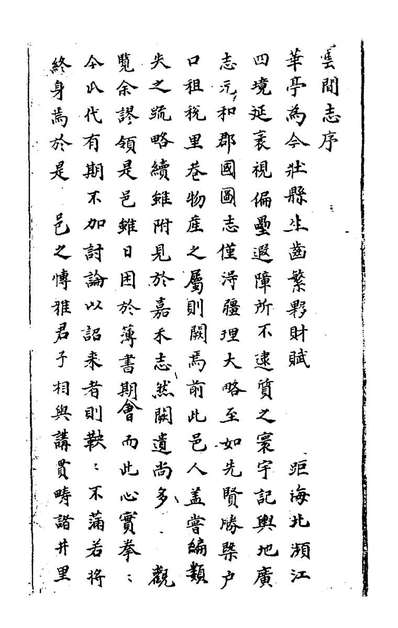 雲間志序
華亭為今壯縣生齒繁夥財賦 距海北瀕江
四境延袤視偏壘遐障所不逮質之寰宇記輿地廣
志元和郡國圖志僅得疆理大略至如先賢勝槩户
口租稅里巷物産之屬則闕焉前此邑人盖嘗編類
失之疏略續雖附見於嘉禾志然闕遺尚多 觀
覽余謬領是邑雖日困於簿書期會而此心實拳〻
今瓜代有期不加討論以詔来者則鞅〻不滿若将
終身焉於是 邑之愽雅君子相與講貫疇諮井里